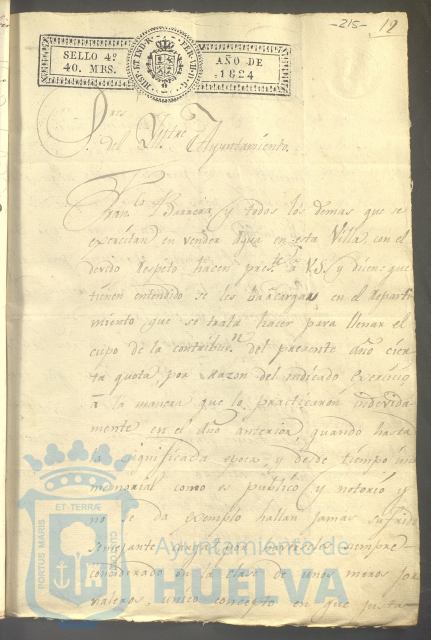 -215- 12
SELLO 4º
40. MRS.
HISP. ET IND. R. FER. VII. D. G.
AÑO DE
1824
S.res
del Ylltre Ayuntamiento.
Fran.co Barrera y todos los demas que se
exercitan en vender Agua en esta Villa con el
devido respeto hacen pres.te á V.S. y dicen que
tienen entendido se les va á cargar en el reparti
miento que se trata hacer para llenar el
cupo de la contribus.n del presente año cier
ta quota por razon del indicado exercicio
á la manera que lo practicaron indevida
mente en el año anterior, quando hasta
la significada epoca, y desde tiempo in
memorial como es publico y notorio y
no se da exemplo hallan Jamas sufrido
semejante carga por haverse siempre
considerado en la clase de unos meros jor
naleros, unico concepto en que justa
ET TERRÆ
PORTUS MARIS
CUSTODIA
Ayuntamiento de
HUELVA